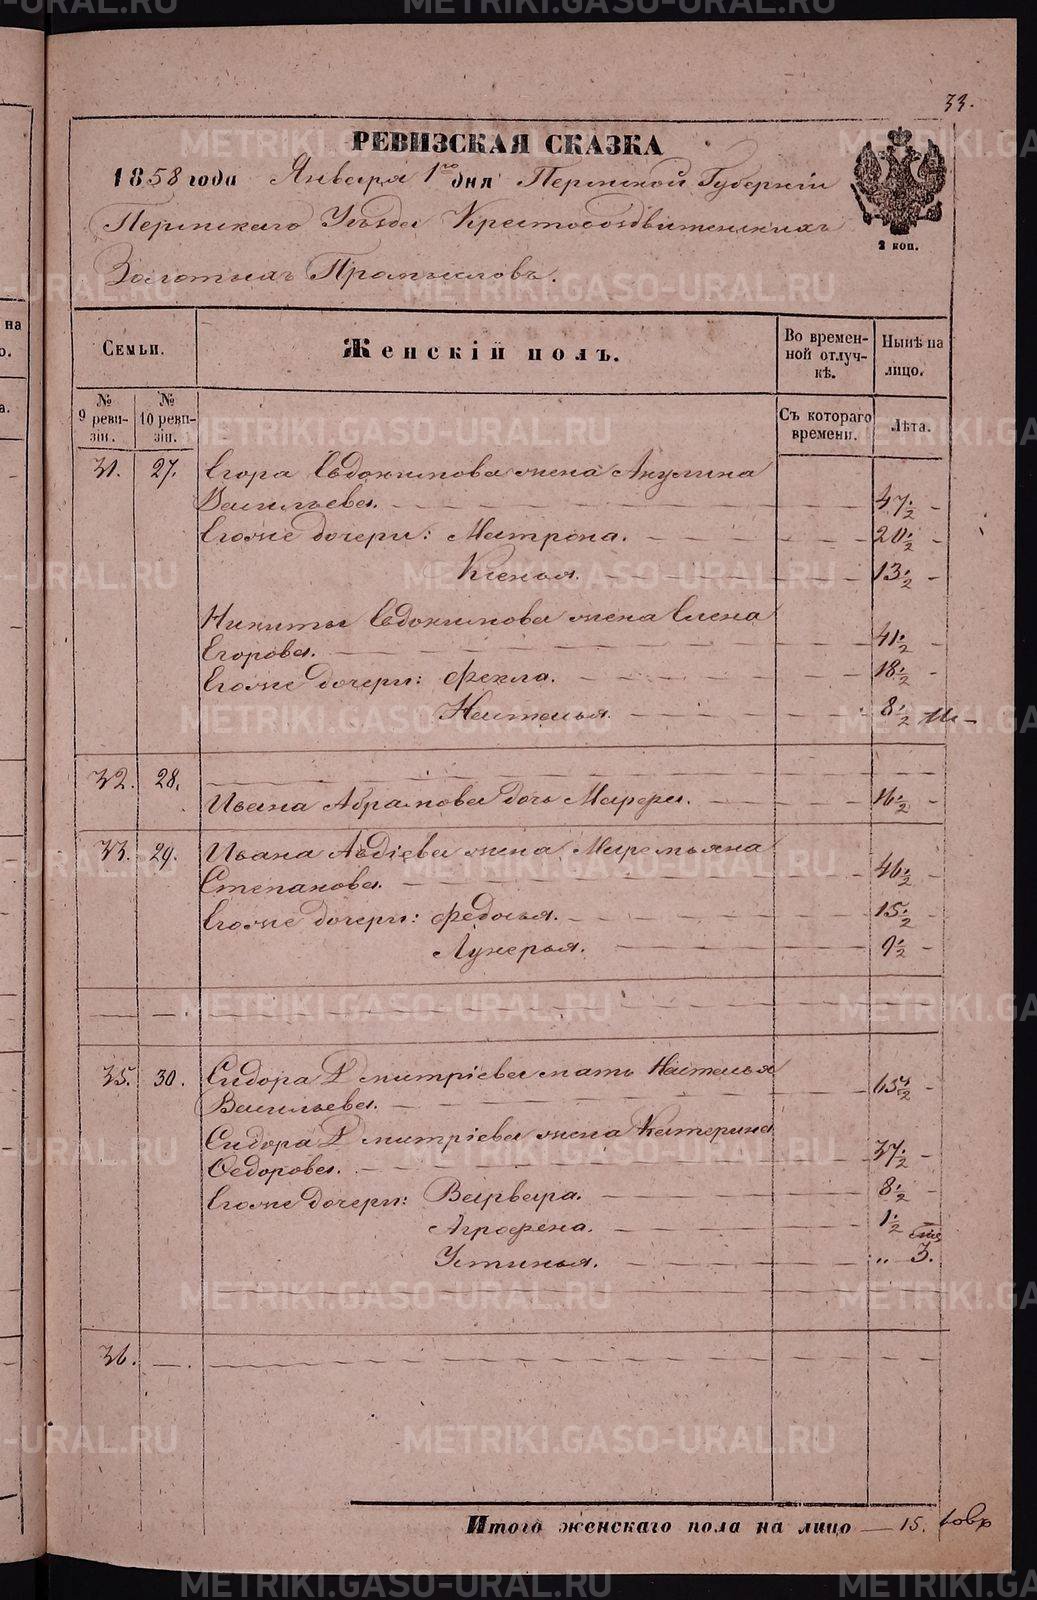 33.
РЕВИЗСКАЯ СКАЗКА
1858 года Января 1го дня Пермской Губерніи
Пермскаго Уѣзда Крестовоздвиженскихъ
Золотыхъ Промысловъ.
2 коп.
Семьи.
Женскій полъ.
Во времен-
ной отлуч-
кѣ.
Нынѣ на
лицо.
№
9 реви-
зіи.
№
10 реви-
зіи.
Съ котораго
времени.
Лѣта.
31. 27. Егора Евдокимова жена Акулина
Васильева. 47½
Егоже дочери: Матрона. 20½
Ксенья. 13½
Никиты Евдокимова жена Елена
Егорова. 41½
Егоже дочери: Фекла. 18½
Наталья. 8½
32. 28.
Ивана Абрамова дочь Марфа. 16½
33. 29. Ивана Авдіева жена Маремьяна
Степанова. 46½
Егоже дочери: Федосья. 15½
Лукерья. 9½
35. 30. Сидора Дмитріева мать Наталья
Васильева. 65½
Сидора Дмитріева жена Катерина
Федорова. 37½
Егоже дочери: Варвара. 8½
Агрофена. 1½
Устинья. „ 3.
36.
Итого женскаго пола на лицо — 15.
METRIKI.GASO-URAL.RU